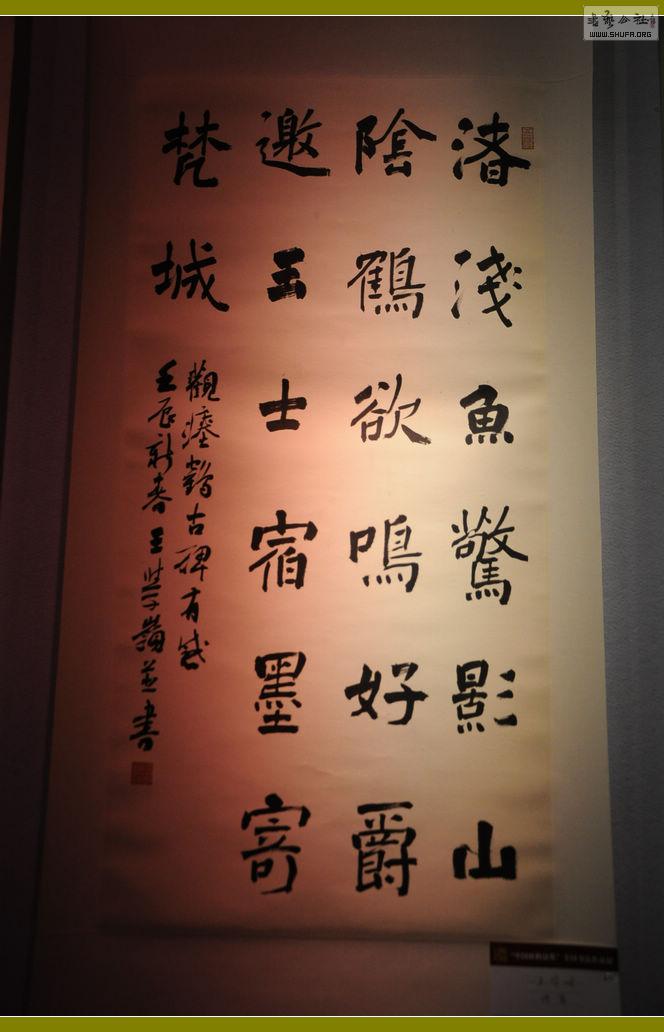 渚淺魚驚影山
陰鶴欲鳴好爵
邀王士宿墨寄
梵城
觀瘞鶴古碑有感
壬辰新春王學嶺並書
WWW.SHUFA.ORG